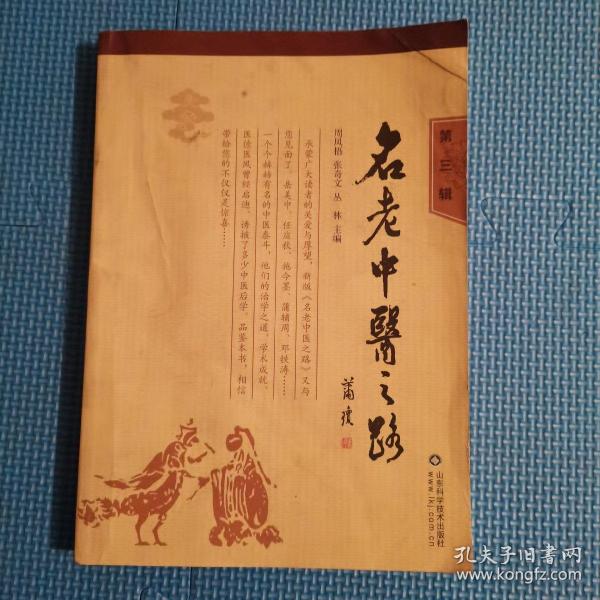 第三辑
名老中醫之路
萧璞
周凤梧 张奇文 丛 林 主编
承蒙广大读者的关爱与厚望,新版《名老中医之路》又与
您见面了。岳美中、任应秋、施今墨、蒲辅周、邓铁涛……
一个个赫赫有名的中医泰斗,他们的治学之道、学术成就、
医德医风曾经启迪、诱掖了多少中医后学。品鉴本书,相信
带给您的不仅仅是惊喜……
山东科学技术出版社
www.lkj.com.cn
孔夫子旧书网
www.kongfz.com